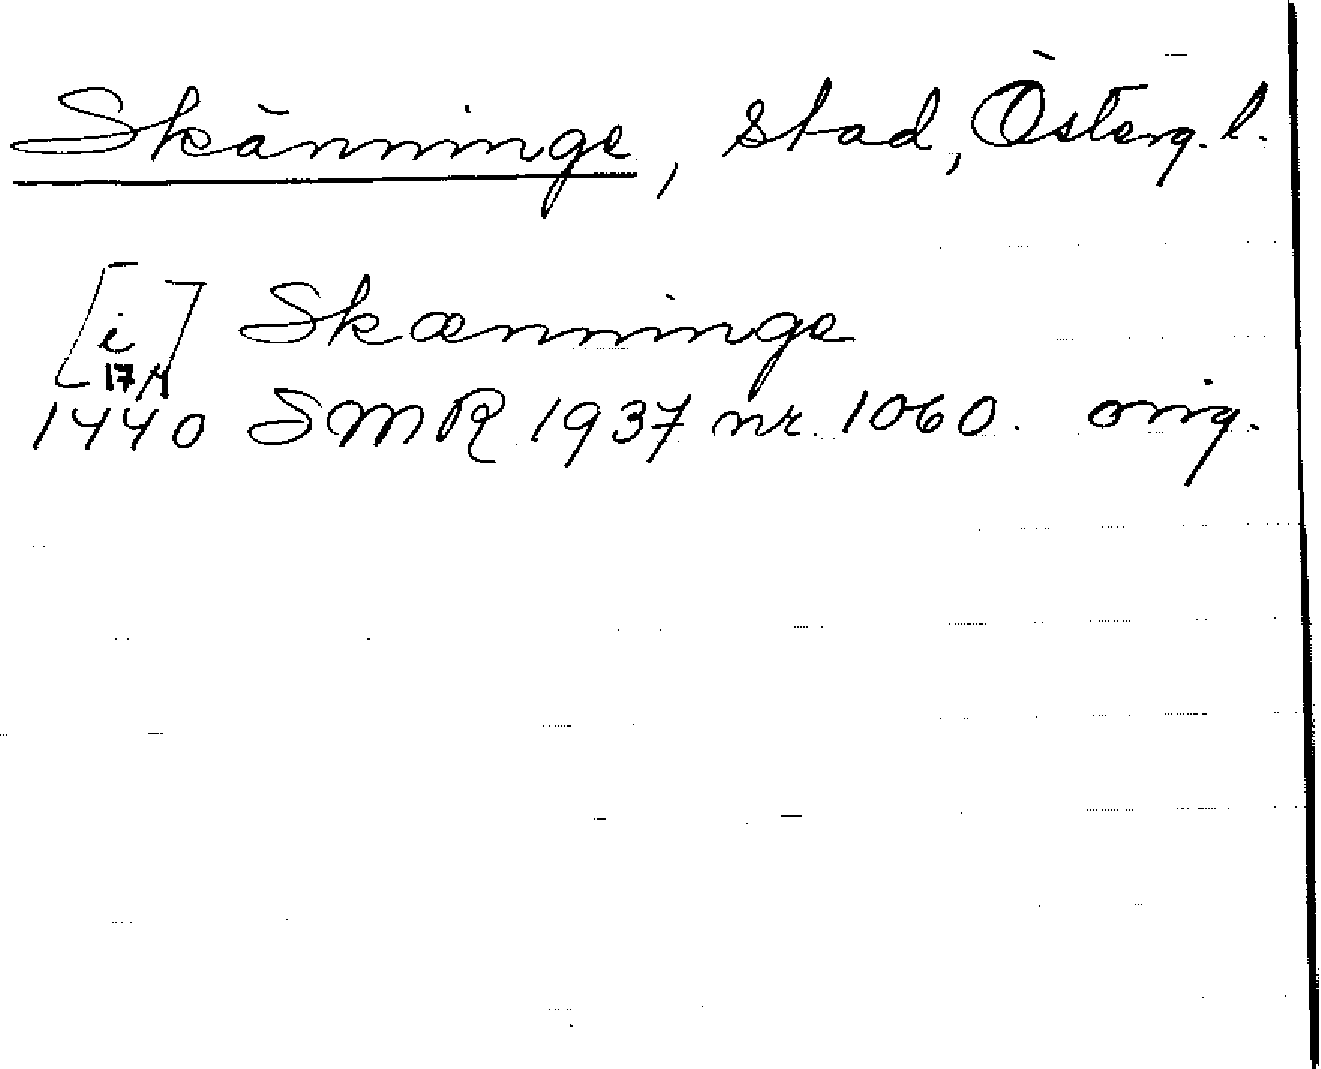 Skänninge, stad, Österg. l.
[i] Skænninge
17/4
1440 SMR 1937 nr. 1060. orig.